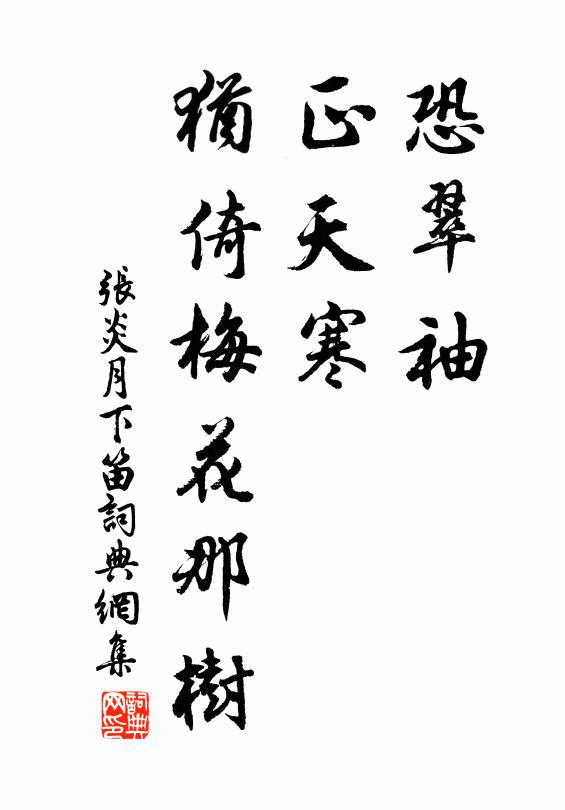 恐翠袖
正天寒
猶倚梅花那樹
張炎月下笛詞典網集
詞典網印